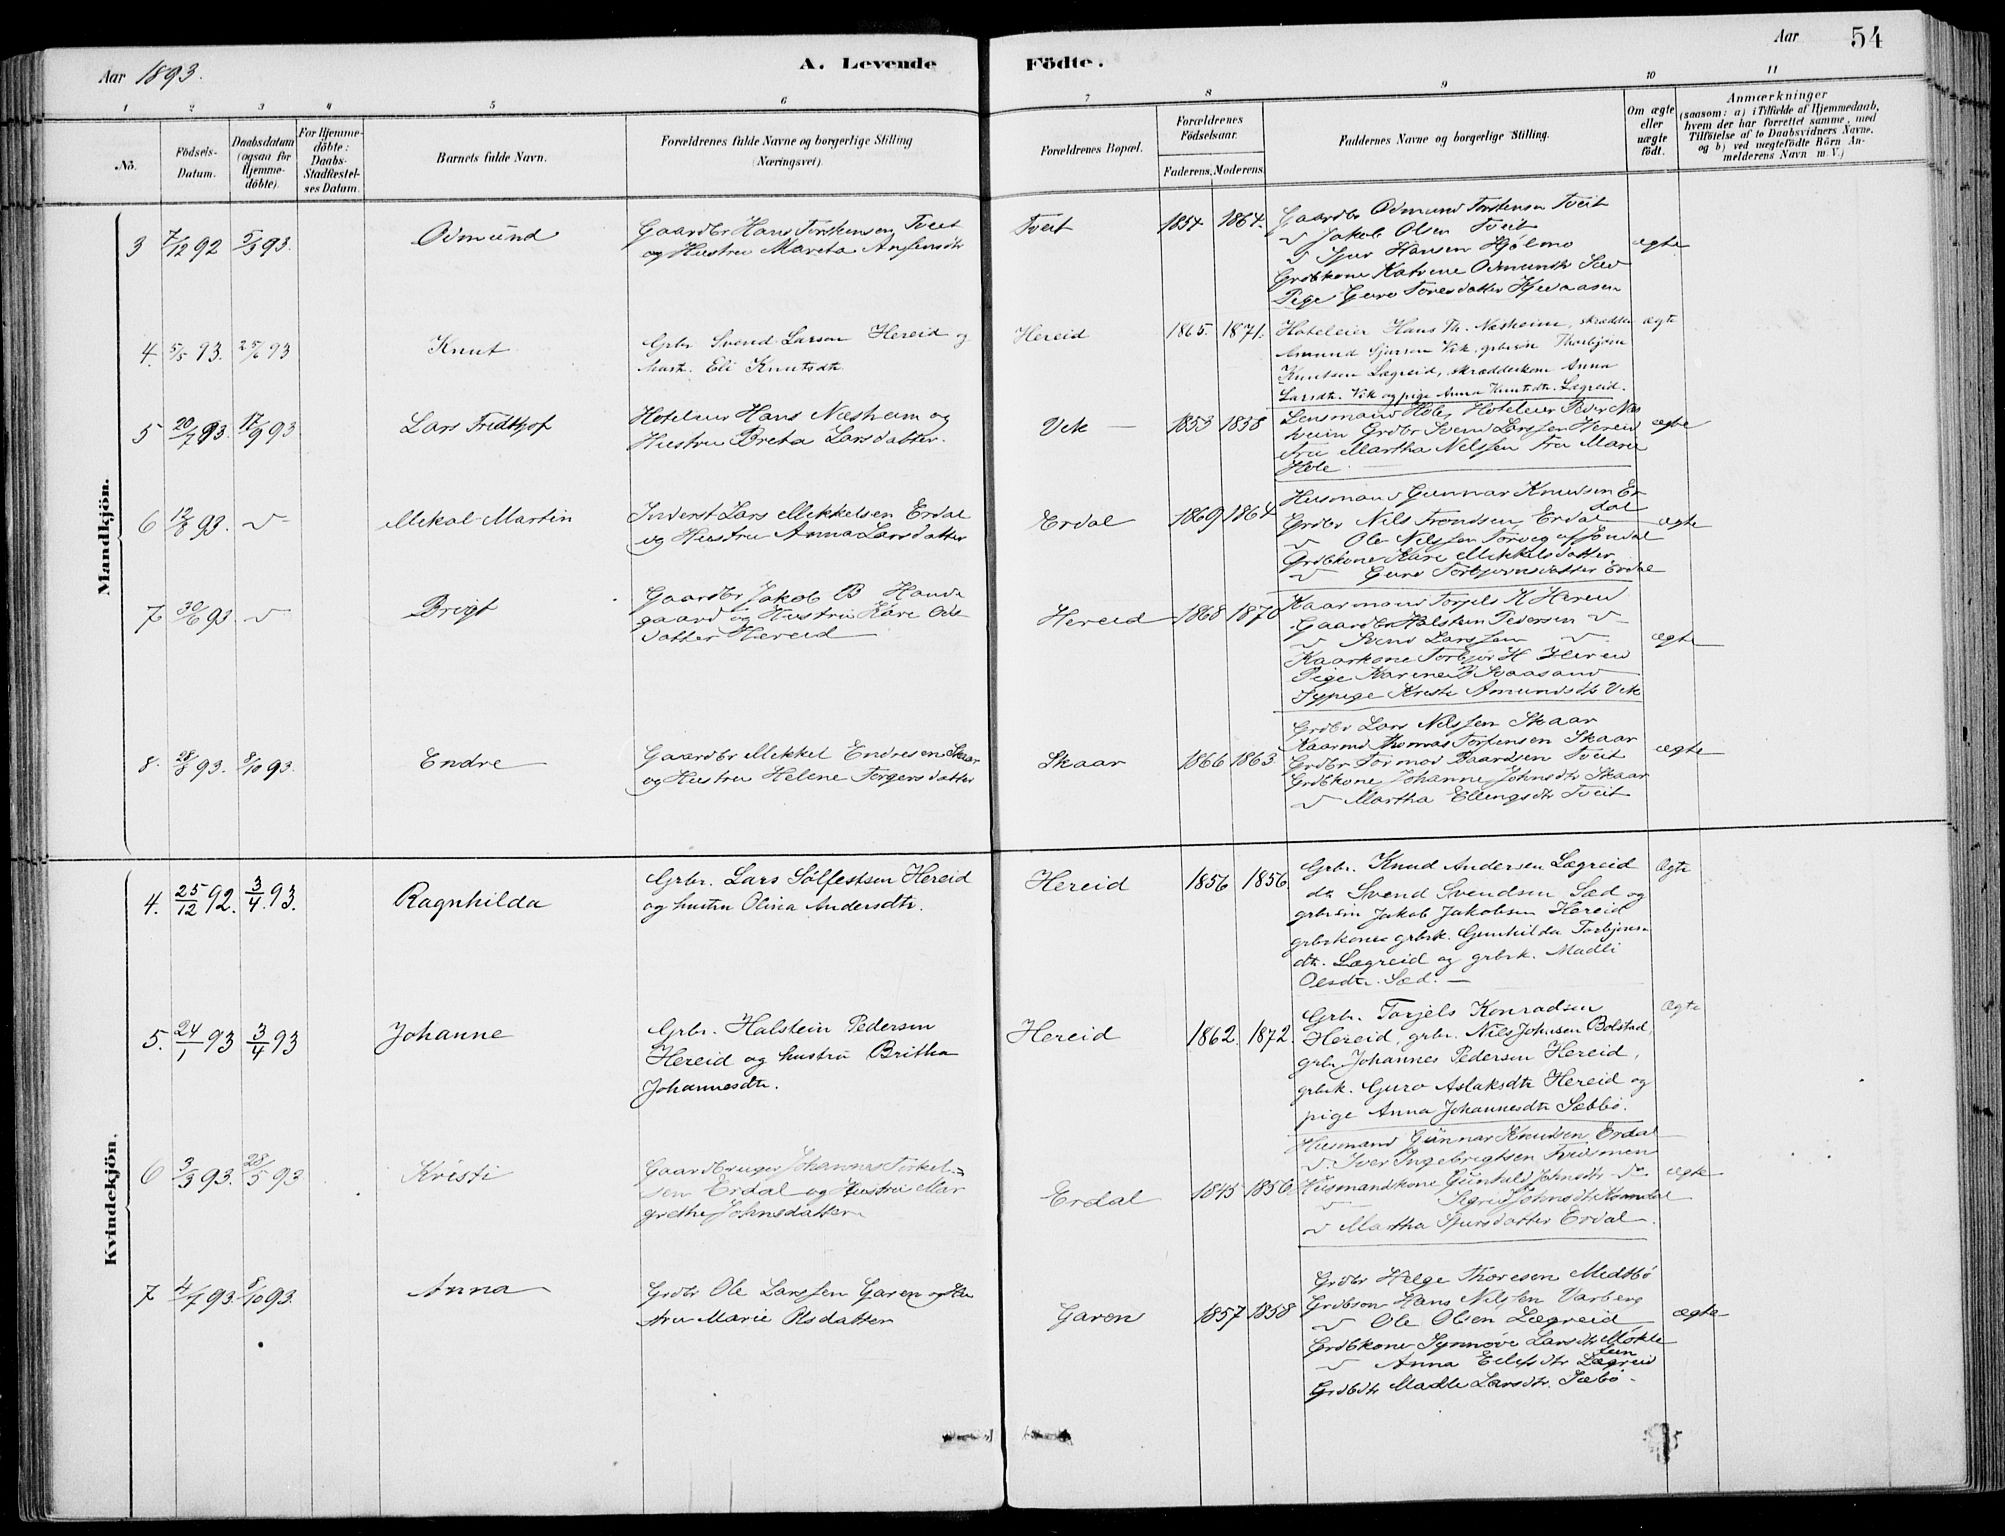 Aar 1893.
A. Levende Födte.
Aar 54
1 2 3 4 5 6 7 8 9 10 11
No.
Födsels-Datum.
Daabsdatum (ogsaa for Hjemme-döbte).
For Hjemme-döbte: Daabs-Stadfæstel-ses Datum.
Barnets fulde Navn.
Forældrenes fulde Navne og borgerlige Stilling (Næringsvei).
Forældrenes Bopæl.
Forældrenes Födselsaar.
Faderens. Moderens.
Faddernes Navne og borgerlige Stilling.
Om ægte eller uægte födt.
Anmærkninger
(saasom: a) i Tilfælde af Hjemmedaab,
hvem der har forrettet samme, med
Tilföielse af to Daabsvidners Navne,
og b) ved uægtefödte Börn An-
melderens Navn m. V.)
Mandkjön.
3 7/12 92 5/3 93. Odmund
Gaardbr Hans Torstensen Tveit
og Hustru Mareta
Tveit 1854 1864.
Gaardbr Odmund Torstensen Tveit
" Jakob Olsen Tveit
" Sjur Hansen Hjölmo
Grdbkone Katrine Odmundsdr Sæd
Pige Guro Toresdatter
ægte
4. 5/5 93. 25/6 93 Knut
Gbr Svend Larsen Hereid og
hust. Eli Knutsdtr
Hereid 1865. 1871.
Hoteleier Hans Th. Næsheim, skrædder
Amund Sjursen Vik, gbrsön Thorbjörn
Knutsen Lægreid, skrædderkone Anna
Larsdtr. Vik og pige Anna Knutsdtr. Lægreid.
ægte
5 20/7 93. 17/9 93 Lars Fridthjof
Hoteleier Hans Næsheim og
Hustru Breta Larsdatter.
Vik — 1853 1858
Lensmand Hole, Hoteleier Peder Næs
heim Grdbr Svend Larssen Hereid
Fru Martha Nelssen Fru Marie
Hole.
ægte
6 12/8 93. " Mikal Martin
Inderst Lars Mikkelsen Erdal
og Hustru Anna Larsdatter
Erdal 1869 1864
Husmand Gunnar Knudsen Er
dal
Grdbr Nils Trondsen Erdal
" Ole Nilssen
Grdbkone Kari Mikkelsdatter
" Guro Torbjörnsdatter Erdal
ægte
7 30/6 93 " Brigt
Gaardbr Jakob B Hauda
gaard og Hustru Kare Ols
datter Hereid
Hereid 1868 1870
Kaarmand Torjels K Hereid
Gaardbr Halsten Pedersen "
" Svend Larssen "
Kaarkone Torbjör H Hereid
Pige Karine B
Sypige Kristi Amundsdtr Vik
ægte
8. 28/8 93. 8/10 93. Endre
Gaardbr Mikkel Endresen Skaar
og Hustru Helene Torgersdatter
Skaar 1866 1863
Grdbr Lars Nilssen Skaar
Kaarmd Thomas Torfinsen Skaar
Grdbr Tormod Baardsen Tveit
Grdbkone Johanne Johnsdtr Skaar
" Martha Ellingsdtr Tveit
ægte
Kvindekjön.
4. 25/12 92. 3/4 93. Ragnhilda
Grbr. Lars Sölfestsen Hereid
og hustru Olina Andersdtr.
Hereid 1856 1856.
Grbr. Knud Andersen Lægreid
do Svend Svendsen Sæd og
grbrsön Jakob Jakobsen Hereid
grbrkone grbrk. Gunhilda Torbjörns
dtr. Lægreid og grbrk. Madli
Olsdtr. Sæd. —
Ægte
5. 24/1 93 3/4 93 Johanne
Grbr. Halstein Pedersen
Hereid og hustru Britha
Johannesdtr.
Hereid 1862. 1872.
Grbr. Torjels Konradsen
Hereid, grbr. Nils Johnsen Bolstad,
grbr. Johannes Pedersen Hereid,
grbrk. Guro Aslaksdtr Hereid og
pige Anna Johannesdtr Sæbbö.
Ægte
6 3/3 93. 28/5 93 Kristi
Gaardbruger Johannes Torkel-
sen Erdal og Hustru Mar
grethe Johnsdatter
Erdal 1845 1856
Husmand Gunnar Knudsen Erdal
" Iver Ingebrigtsen
Husmandkone Gunhild Johnsdtr "
" Sigrid Johnsdtr
" Martha Sjursdatter Erdal.
ægte
7 4/7 93. 8/10 93. Anna
Grdbr Ole Larssen Garen og Hu
stru Marie Olsdatter
Garen 1857 1858
Grdbr Helge Thoresen Medtbö
Grdbsön Hans Nilssen Varberg
" Ole Olsen Lægreid
Grdbkone Synnöve Larsdtr Mökle
tun
" Anna Eilifsdtr Lægreid
Grdbdtr Madle Larsdtr. Sæbö.
ægte